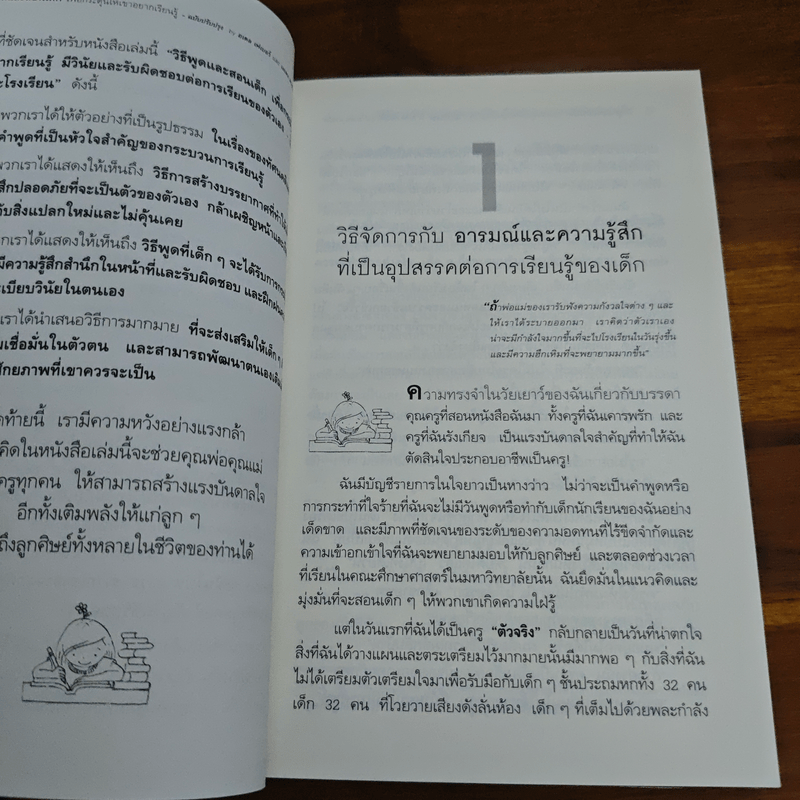 เพื่อกระตุ้นให้เขาอยากเรียนรู้ - ฉบับปรับปรุง
ที่ชัดเจนสำหรับหนังสือเล่มนี้ "วิธีพูดและสอนเด็ก
ยากเรียนรู้ มีวินัยและรับผิดชอบต่อการเรียนของตัวเอง
ะโรงเรียน" ดังนี้
พวกเราได้ให้ตัวอย่างที่เป็นรูปธรรม ในเรื่องของทัศนคติ
คำพูดที่เป็นหัวใจสำคัญของกระบวนการเรียนรู้
พวกเราได้แสดงให้เห็นถึง วิธีการสร้างบรรยากาศที่ทำให้
สึกปลอดภัยที่จะเป็นตัวของตัวเอง กล้าเผชิญหน้าและ
กับสิ่งแปลกใหม่และไม่คุ้นเคย
กเราได้แสดงให้เห็นถึง วิธีพูดที่เด็ก ๆ จะได้รับการ
มีความรู้สึกสำนึกในหน้าที่และรับผิดชอบ และฝึกฝน
ะเบียบวินัยในตนเอง
เราได้นำเสนอวิธีการมากมาย ที่จะส่งเสริมให้เด็ก ๆ
มเชื่อมั่นในตัวตน และสามารถพัฒนาตนเอง
ศักยภาพที่เขาควรจะเป็น
ดท้ายนี้ เรามีความหวังอย่างแรงกล้า
คิดในหนังสือเล่มนี้จะช่วยคุณพ่อคุณแม่
ครูทุกคน ให้สามารถสร้างแรงบันดาลใจ
อีกทั้งเติมพลังให้แก่ลูก ๆ
ถึงลูกศิษย์ทั้งหลายในชีวิตของท่านได้
1
วิธีจัดการกับ อารมณ์และความรู้สึก
ที่เป็นอุปสรรคต่อการเรียนรู้ของเด็ก
"ถ้าพ่อแม่ของเรารับฟังความกังวลใจต่าง ๆ และ
ให้เราได้ระบายออกมา เราคิดว่าตัวเราเอง
น่าจะมีกำลังใจมากขึ้นที่จะไปโรงเรียนในวันรุ่งขึ้น
และมีความฮึกเหิมที่จะพยายามมากขึ้น"
ความทรงจำในวัยเยาว์ของฉันเกี่ยวกับบรรดา
คุณครูที่สอนหนังสือฉันมา ทั้งครูที่ฉันเคารพรัก และ
ครูที่ฉันรังเกียจ เป็นแรงบันดาลใจสำคัญที่ทำให้ฉัน
ตัดสินใจประกอบอาชีพเป็นครู!
ฉันมีบัญชีรายการในใจยาวเป็นหางว่าว ไม่ว่าจะเป็นคำพูดหรือ
การกระทำที่ใจร้ายที่ฉันจะไม่มีวันพูดหรือทำกับเด็กนักเรียนของฉันอย่าง
เด็ดขาด และมีภาพที่ชัดเจนของระดับของความอดทนที่ไร้ขีดจำกัดและ
ความเข้าอกเข้าใจที่ฉันจะพยายามมอบให้กับลูกศิษย์ และตลอดช่วงเวลา
ที่เรียนในคณะศึกษาศาสตร์ในมหาวิทยาลัยนั้น ฉันยึดมั่นในแนวคิดและ
มุ่งมั่นที่จะสอนเด็ก ๆ ให้พวกเขาเกิดความใฝ่รู้
แต่ในวันแรกที่ฉันได้เป็นครู "ตัวจริง" กลับกลายเป็นวันที่น่าตกใจ
สิ่งที่ฉันได้วางแผนและตระเตรียมไว้มากมายนั้นมีมากพอ ๆ กับสิ่งที่ฉัน
ไม่ได้เตรียมตัวเตรียมใจมาเพื่อรับมือกับเด็ก ๆ ชั้นประถมหกทั้ง 32 คน
เด็ก 32 คน ที่โวยวายเสียงดังลั่นห้อง เด็ก ๆ ที่เต็มไปด้วยพละกำลัง